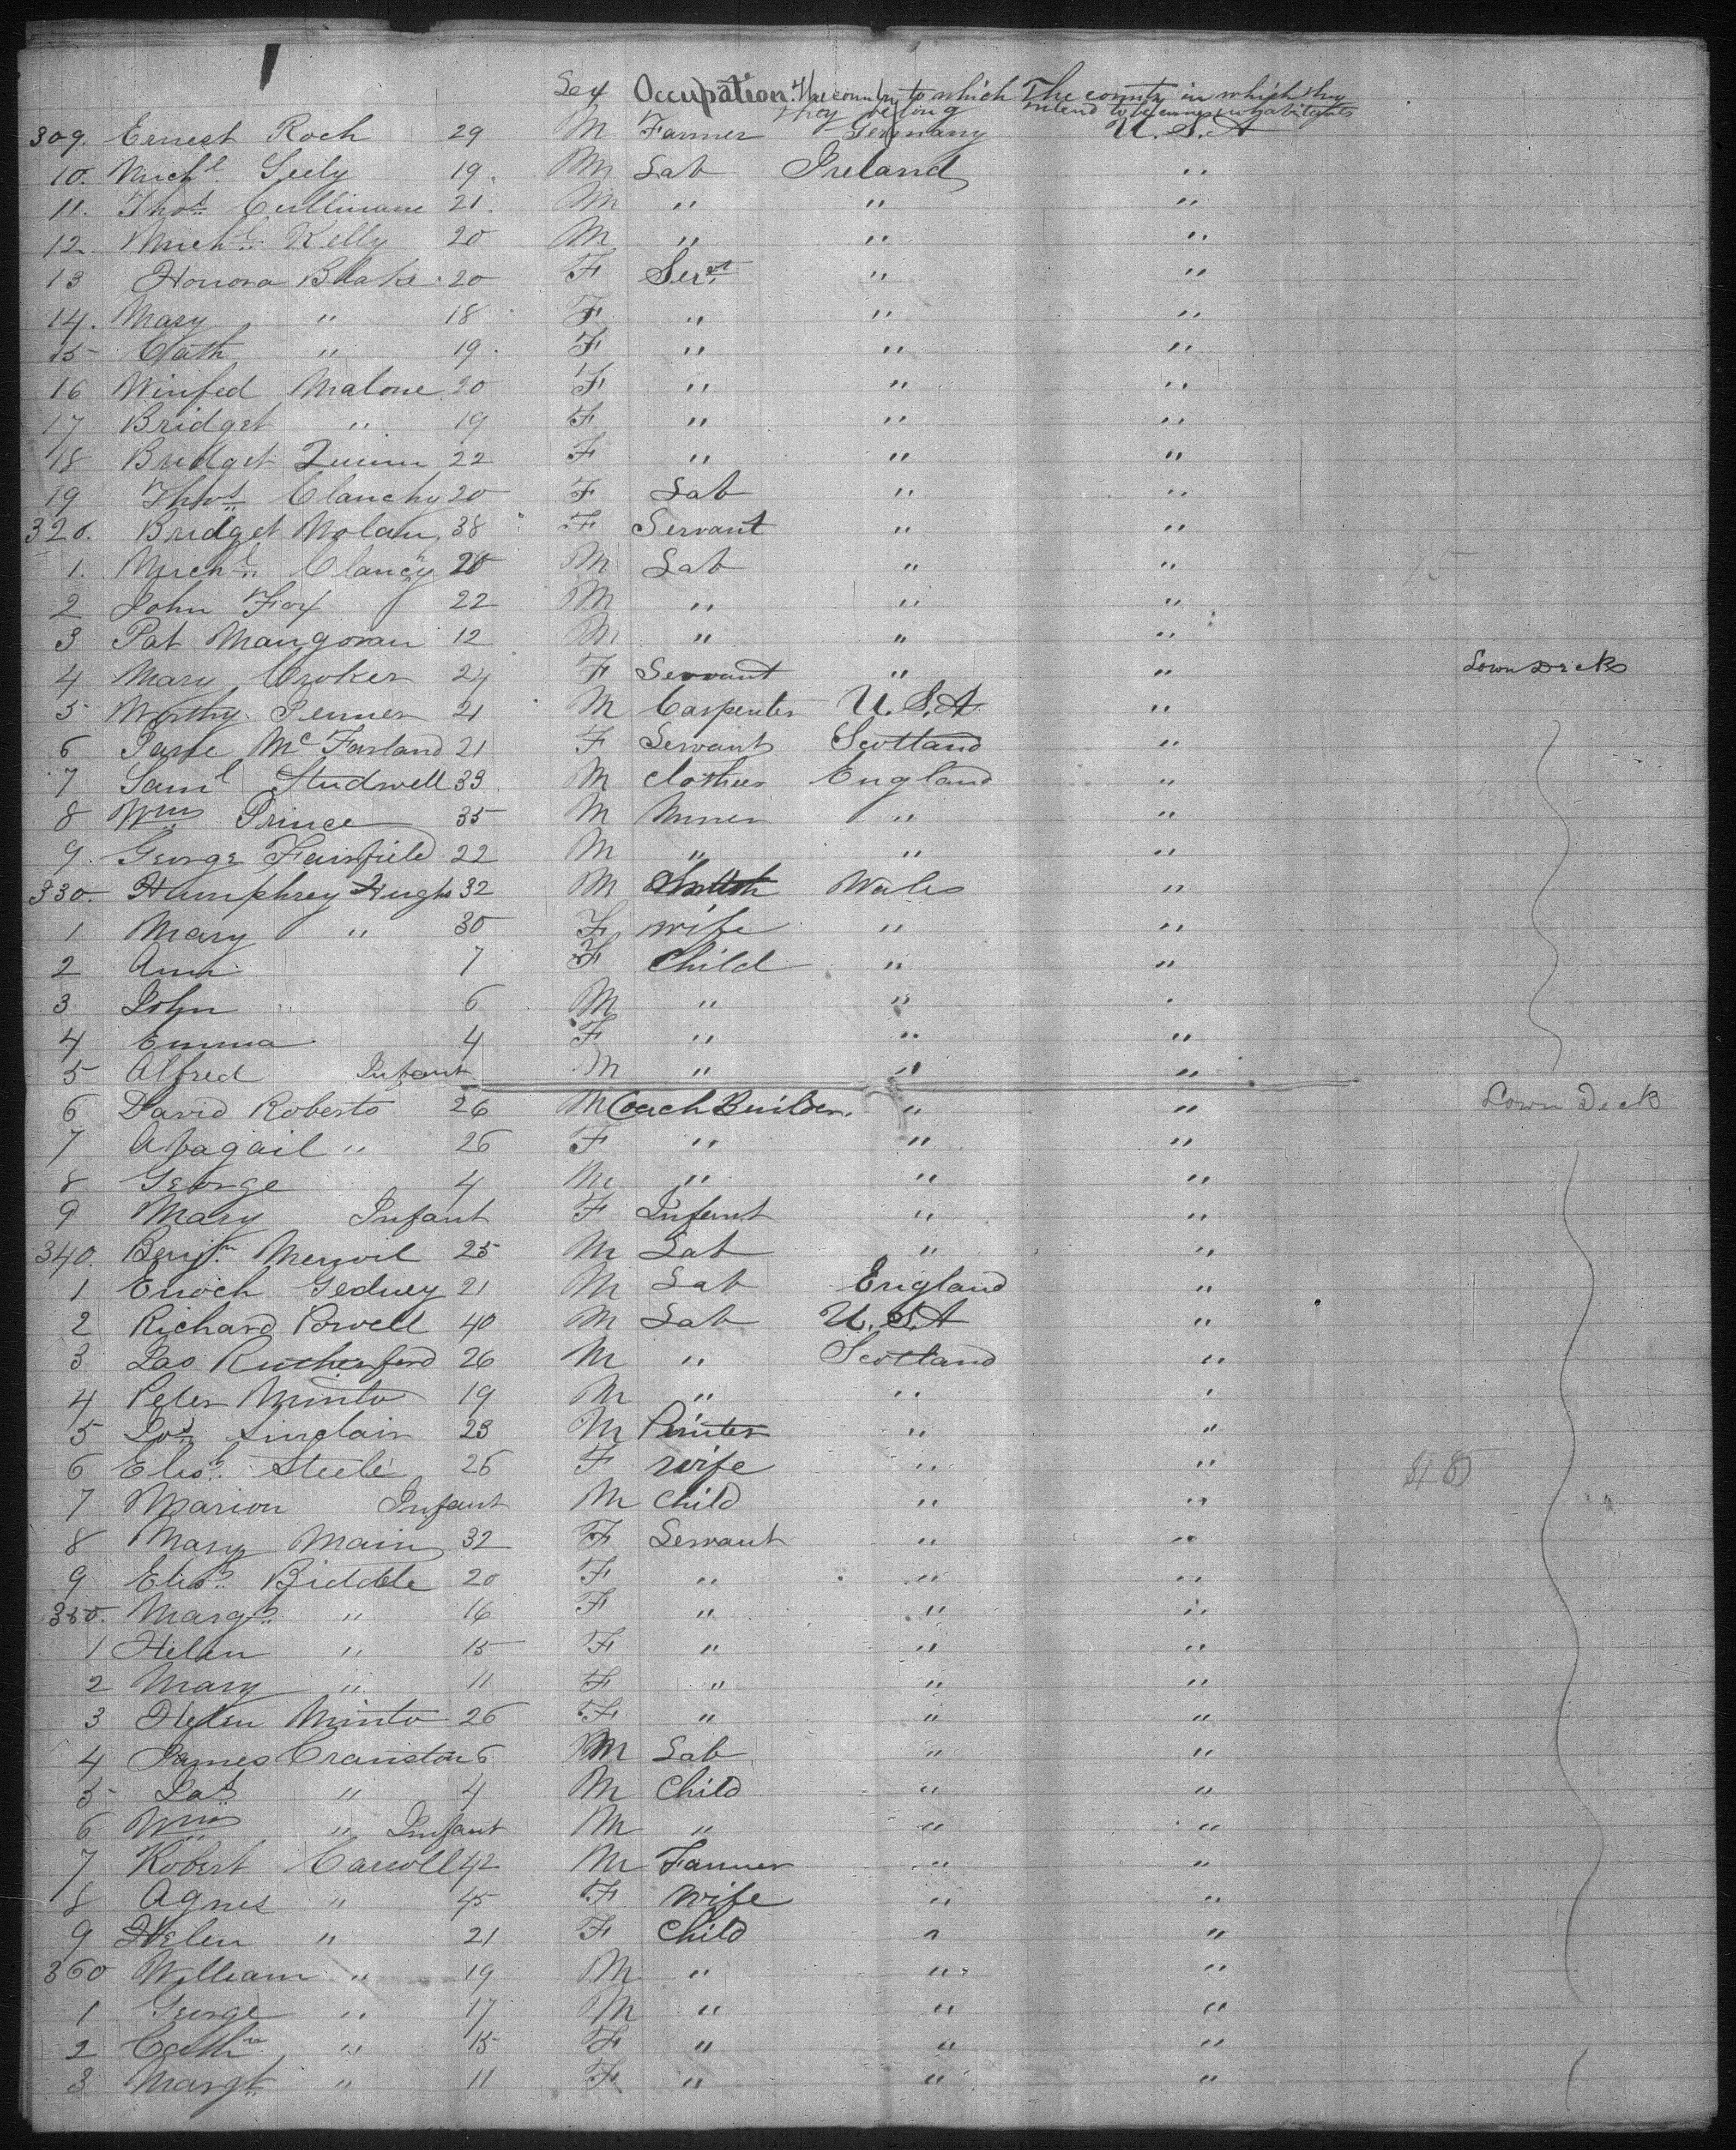 Sex Occupation. The country to which they belong The country in which they intend to become inhabitants
309. Ernest Roch 29 M Farmer Germany U.S.A
10. Michl Seely 19. M Lab Ireland "
11. Thos Cullinane 21. M " " "
12 Michl Kelly 20 M " " "
13 Honora Blake 20 F Servt " "
14. Mary " 18 F " " "
15 Cath " 19. F " " "
16 Winfed Malone 20 F " " "
17 Bridget " 19 F " " "
18 Bridget Quinn 22 F " " "
19 Thos Clanchy 20 F Lab " "
320. Bridget Nolan 38 F Servant " "
1. Michl Clancy 20 M Lab " "
2 John Fox 22 M " " "
3 Pat Mangovan 12 M " " "
4 Mary Croker 24 F Servant " " Lown Deck
5 Worthy Penner 21 M Carpenter U.S.A "
6 McFarland 21 F Servant Scotland "
7 Saml Studwell 33 M Clothier England "
8 Wm Prince 35 M Miner " "
9. George Fairfield 22 M " " "
330. Humphrey Hughs 32 M Wales "
1 Mary " 30 F wife " "
2 Ann 7 F Child " "
3 John 6 M " "
4 Emma 4 F " " "
5 Alfred Infant M " " "
6 David Roberts 26 M Coach Builder. " " Lown Deck
7 Abagail " 26 F " " "
8 George 4 M " " "
9 Mary Infant F Infant " "
340. Benjn 25 M Lab " "
1 Enoch Gedney 21 M Lab England "
2 Richard Powell 40 M Lab U.S.A "
3 Jas Rutherford 26 M " Scotland "
4 Peter Minto 19 M " " "
5 Jos Sinclair 23 M Printer " "
6 Elisb Steele 26 F wife " "
7 Marion Infant M Child " "
8 Mary Main 32 F Servant " "
9 Elisb Biddle 20 F " " "
350. Margt " 16 F " " "
1 Helen " 15 F " " "
2 Mary " 11 F " " "
3 Helen Minto 26 F " " "
4 James Cranston 6 M Lab " "
5 Jas " 4 M Child " "
6 Wm " Infant M " " "
7 Robert Carroll 42 M Farmer " "
8 Agnes " 45 F Wife " "
9 Helen " 21 F Child " "
360 William " 19 M " " "
1 George " 17 M " " "
2 Cathn " 15 F " " "
3 Margt " 11 F " " "